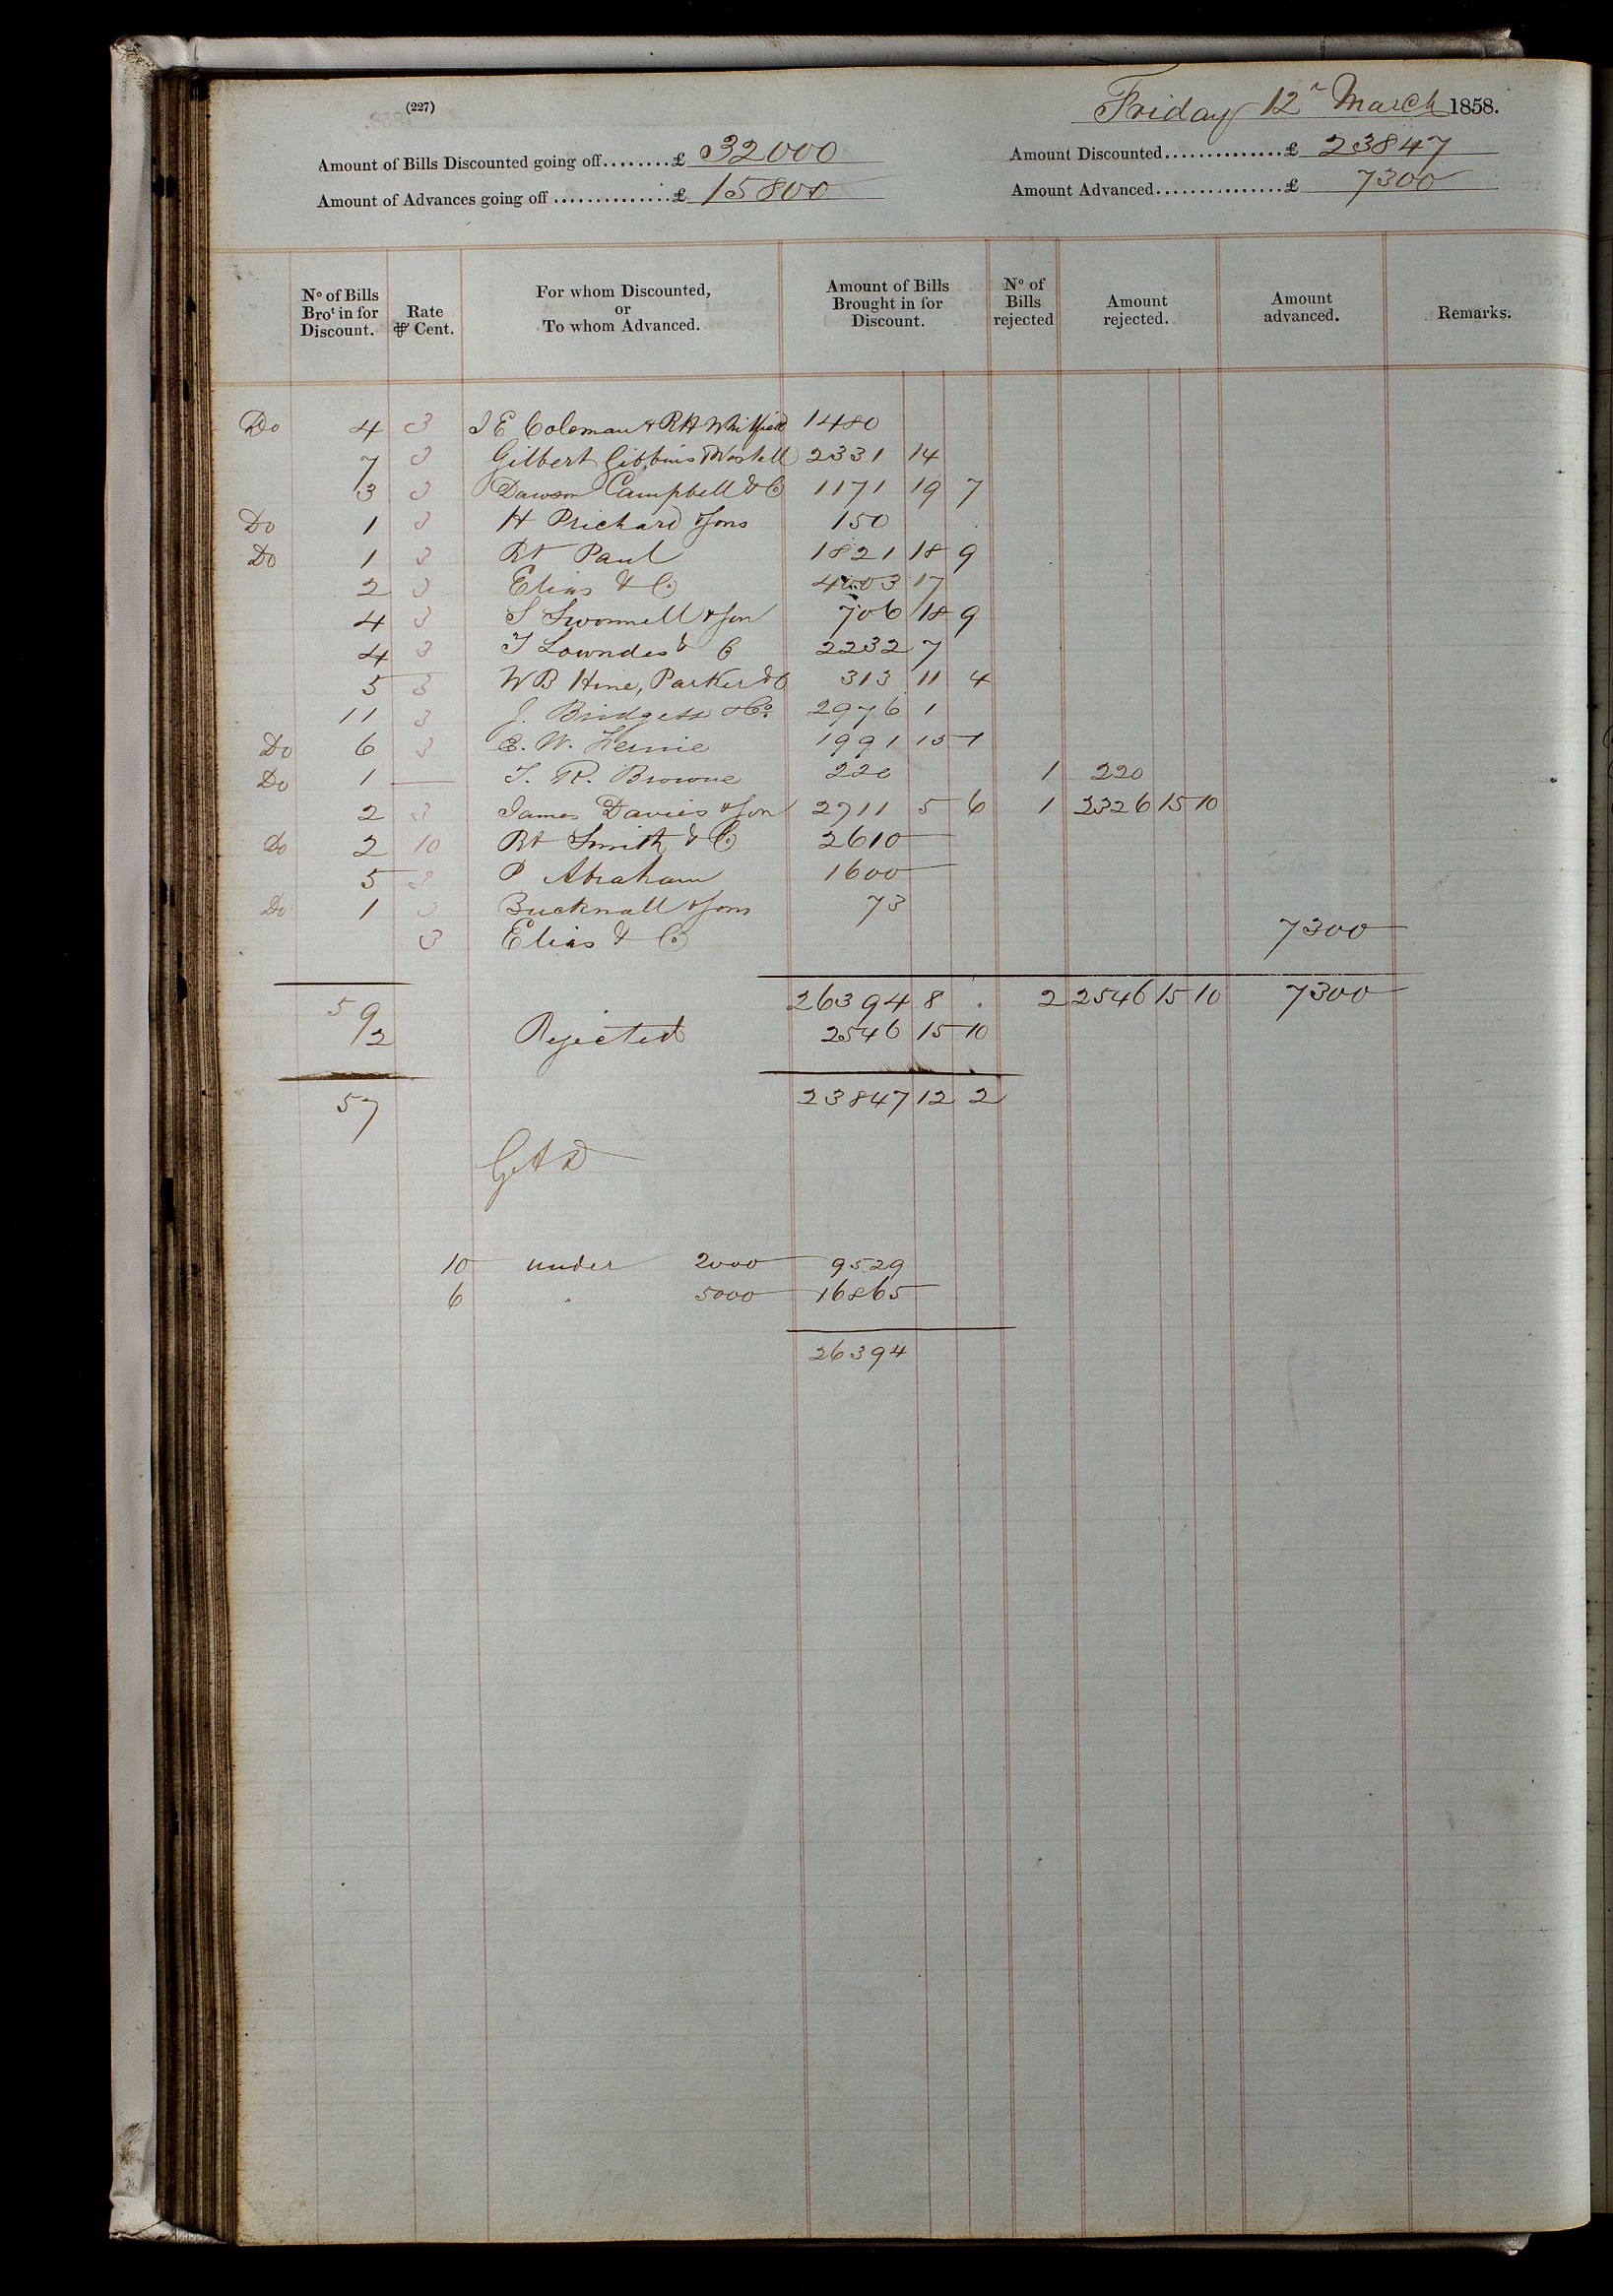 (227)
Friday 12 March 1858.
Amount of Bills Discounted going off........£ 32000
Amount Discounted..............£ 23847
Amount of Advances going off..............£ 15800
Amount Advanced...............£ 7300
No of Bills Brot in for Discount. Rate ⅌ Cent. For whom Discounted, or To whom Advanced. Amount of Bills Brought in for Discount. No of Bills rejected Amount rejected. Amount advanced. Remarks.
Do 4 3 J E Coleman & RH Whitfield 1480
7 3 Gilbert Gibbins 2331 14
3 3 Dawson Campbell & Co 1171 19 7
Do 1 3 H Prichard & Sons 150
Do 1 3 Rt Paul 1821 18 9
2 3 Elias & Co 4003 17
4 3 S Swonnell & Son 706 18 9
4 3 T Lowndes & C 2232 7
5 3 W B Hine, Parker & C 313 11 4
11 3 J. Bridgett & Co. 2976 1
Do 6 3 E. W. Fernie 1991 15 1
Do 1 — T. R. Browne 220 1 220
2 3 James Davies & Son 2711 5 6 1 2326 15 10
Do 2 10 Rt Smith & Co 2610
5 3 P Abraham 1600
Do 1 3 Bucknall & Sons 73
3 Elias & Co 7300
59 26394 8 . 2 2546 15 10 7300
2 Rejected 2546 15 10
57 23847 12 2
10 under 2000 9529
6 " 5000 16865
26394